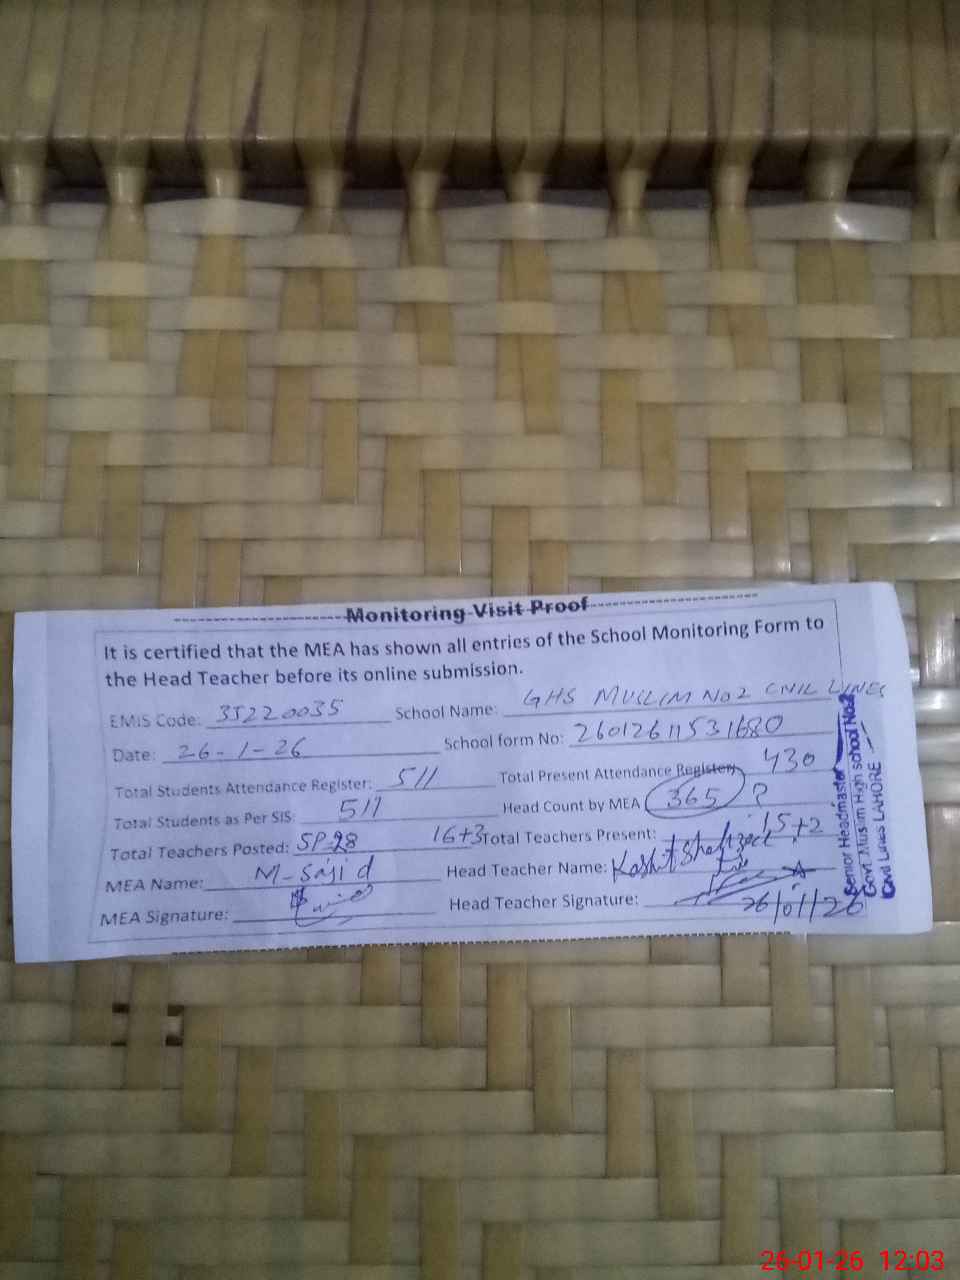 Monitoring Visit Proof
It is certified that the MEA has shown all entries of the School Monitoring Form to
the Head Teacher before its online submission.
EMIS Code: 35220035 School Name: GHS MUSLIM No2 CIVIL LINES
Date: 26-1-26 School form No: 26012611531680
Total Students Attendance Register: 511 Total Present Attendance Register: 430
Total Students as Per SIS: 511 Head Count by MEA 365 ?
Total Teachers Posted: SP-28 16+3 Total Teachers Present: 15+2
MEA Name: M-Sajid Head Teacher Name: Kashif Shahzad
MEA Signature: Head Teacher Signature: 26/01/26
Senior Headmaster
Govt. Muslim High school No.2
Civil Lines LAHORE
26-01-26 12:03